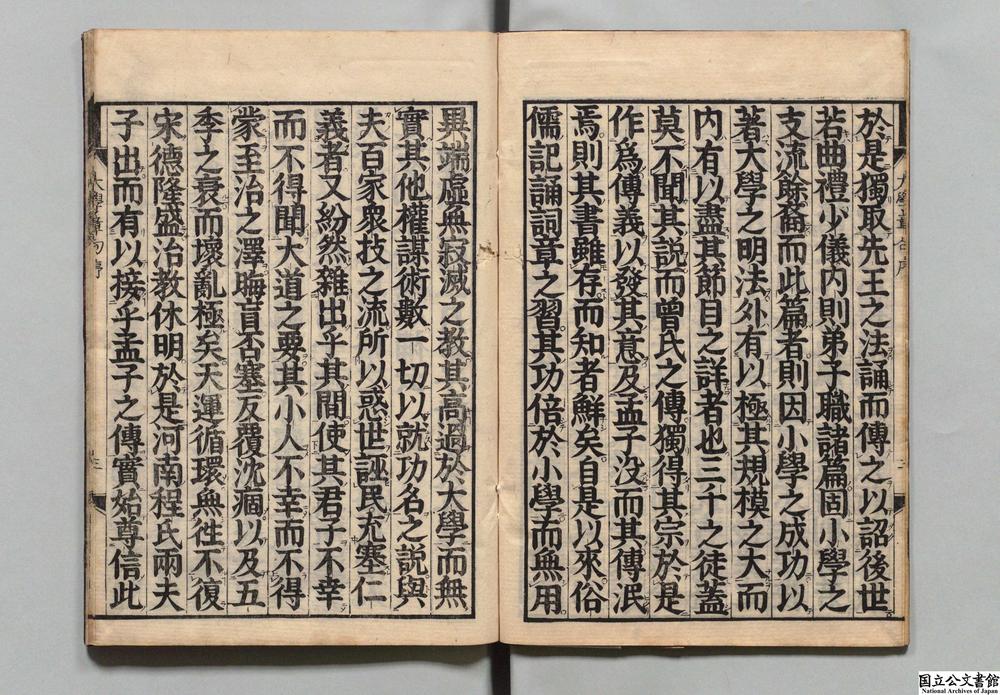 於是獨取先王之法誦而傳之以詔後世
若曲禮少儀内則弟子職諸篇固小學之
支流餘裔而此篇者則因小學之成功以
著大學之明法外有以極其規模之大而
内有以盡其節目之詳者也三千之徒蓋
莫不聞其說而曾氏之傳獨得其宗於是
作爲傳義以發其意及孟子没而其傳泯
焉則其書雖存而知者鮮矣自是以來俗
儒記誦詞章之習其功倍於小學而無用
異端虚無寂滅之教其高過於大學而無
實其他權謀術數一切以就功名之説與
夫百家衆技之流所以惑世誣民充塞仁
義者又紛然雜出乎其間使其君子不幸
而不得聞大道之要其小人不幸而不得
蒙至治之澤晦盲否塞反覆沈痼以及五
季之衰而壞亂極矣天運循環無徃不復
宋德隆盛治教休明於是河南程氏兩夫
子出而有以接乎孟子之傳實始尊信此
大學章句序
三
国立公文書館
National Archives of Japan